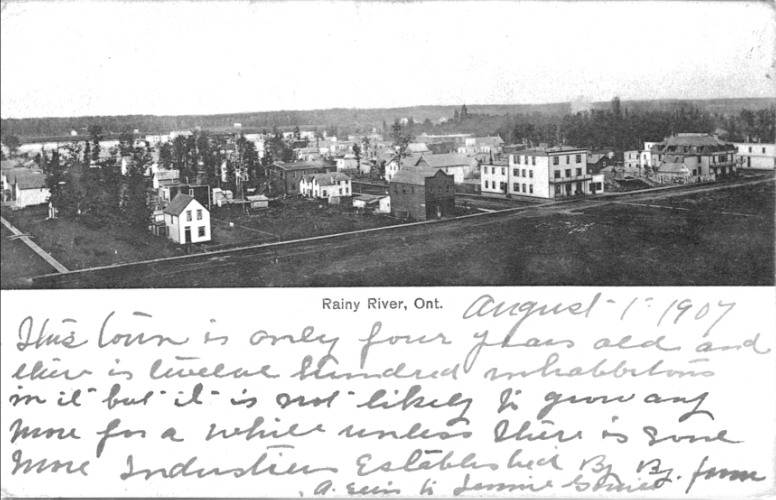 Rainy River, Ont. August 1st 1907
This town is only four years old and
their is twelve hundred inhabbitons
in it but it is not likely to grow any
more for a while unless there is some
More Industies Established By By. from
to Jennie